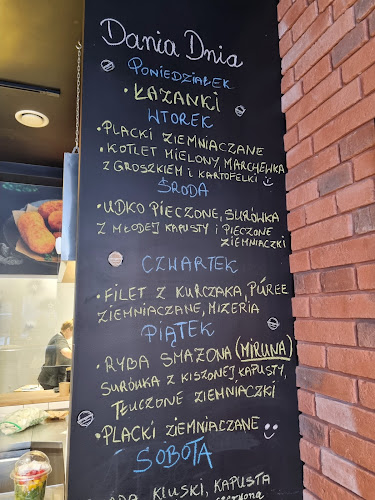 Dania Dnia
PONIEDZIAŁEK
• ŁAZANKI
WTOREK
• PLACKI ZIEMNIACZANE
• KOTLET MIELONY, MARCHEWKA
Z GROSZKIEM i KARTOFELKI
ŚRODA
• UDKO PIECZONE, SURÓWKA
Z MŁODEJ KAPUSTY i PIECZONE
ZIEMNIACZKI
CZWARTEK
• FILET Z KURCZAKA, PÚREE
ZIEMNIACZANE, MIZERIA
PIĄTEK
• RYBA SMAŻONA (MIRUNA)
SURÓWKA Z KISZONEJ KAPUSTY,
TŁUCZONE ZIEMNIACZKI
• PLACKI ZIEMNIACZANE
SOBOTA
KLUSKI, KAPUSTA
czerwona